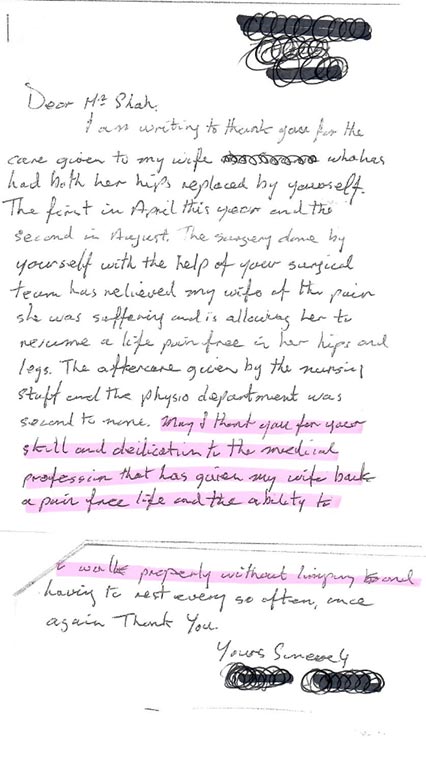 Dear Mr Shah.
I am writing to thank you for the
care given to my wife who has
had both her hips replaced by yourself.
The first in April this year and the
second in August. The surgery done by
yourself with the help of your surgical
team has relieved my wife of the pain
she was suffering and is allowing her to
resume a life pain free in her hips and
legs. The aftercare given by the nursing
staff and the physio department was
second to none. May I thank you for your
skill and dedication to the medical
profession that has given my wife back
a pain free life and the ability to
walk properly without limping and
having to rest every so often, once
again Thank You.
Yours Sincerely